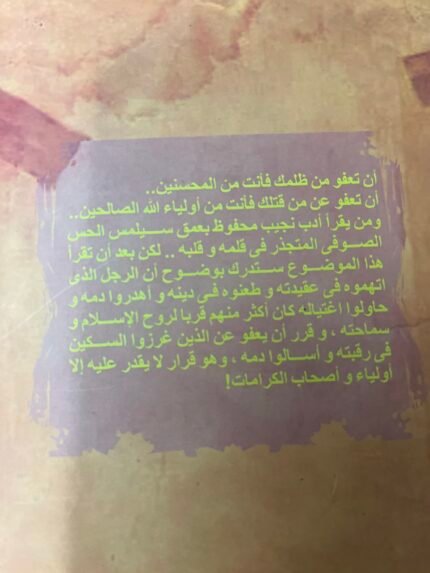 أن تعفو من ظلمك فأنت من المحسنين..
أن تعفو عن من قتلك فأنت من أولياء الله الصالحين..
ومن يقرأ أدب نجيب محفوظ بعمق سيلمس الحس
الصوفى المتجذر فى قلمه و قلبه .. لكن بعد أن تقرأ
هذا الموضوع ستدرك بوضوح أن الرجل الذى
اتهموه فى عقيدته و طعنوه فى دينه و أهدروا دمه و
حاولوا اغتياله كان أكثر منهم قربا لروح الإسلام و
سماحته ، و قرر أن يعفو عن الذين غرزوا السكين
فى رقبته و أسالوا دمه ، وهو قرار لا يقدر عليه إلا
أولياء و أصحاب الكرامات!